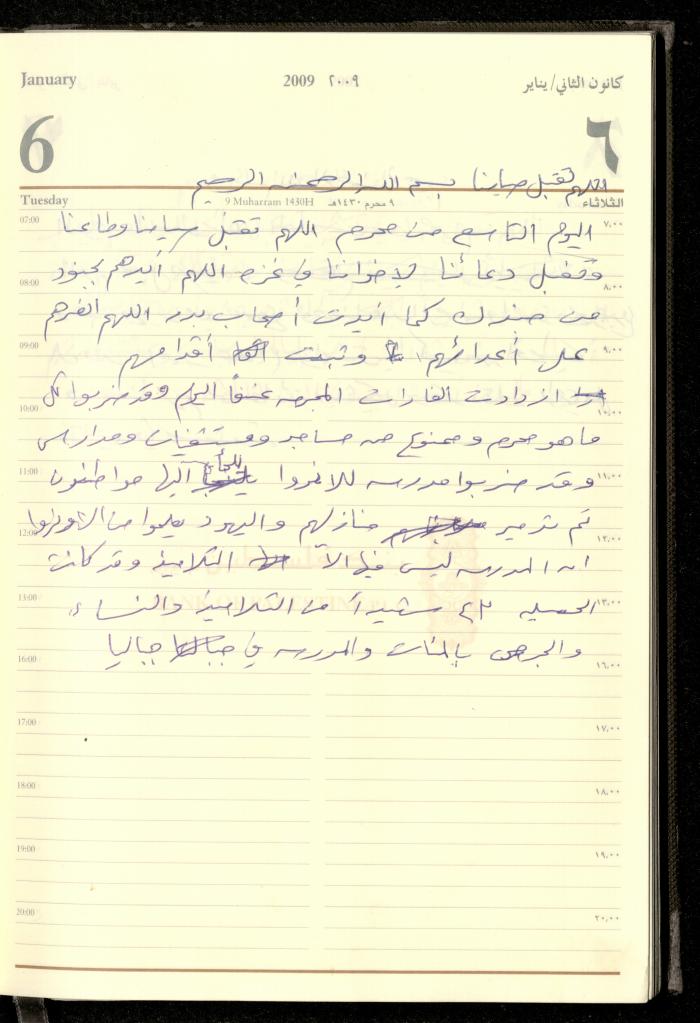 January 2009 ٢٠٠٩ كانون الثاني/يناير
6 ٦
اللهم تقبل صيامنا بسم الله الرحمن الرحيم
Tuesday 9 Muharram 1430H ٩ محرم ١٤٣٠هـ الثلاثاء
07:00 اليوم التاسع من محرم اللهم تقبل صيامنا وطاعتنا ٧,٠٠
وتقبل دعائنا لإخواننا في غزه اللهم أيدهم بجنود
08:00 ٨,٠٠
من جندك كما أيدت أصحاب بدر اللهم انصرهم
09:00 على أعدائهم وثبت أقدامهم ٩,٠٠
ازدادت الغارات المجرمه عنفاً اليوم وقد ضربوا كل
10:00 ١٠,٠٠
ما هو محرم وممنوع من مساجد ومستشفيات ومدارس
11:00 وقد ضربوا مدرسه للانروا يلجأ اليها مواطنون ١١,٠٠
تم تدمير منازلهم واليهود يعلموا من الاونروا
12:00 ١٢,٠٠
انه المدرسه ليس فيها الا التلاميذ وقد كانت
13:00 الحصيله ٤٢ شهيداً من التلاميذ والنساء ١٣,٠٠
والجرحى بالمئات والمدرسه في جباليا
16:00 ١٦,٠٠
17:00 ١٧,٠٠
18:00 ١٨,٠٠
19:00 ١٩,٠٠
20:00 ٢٠,٠٠